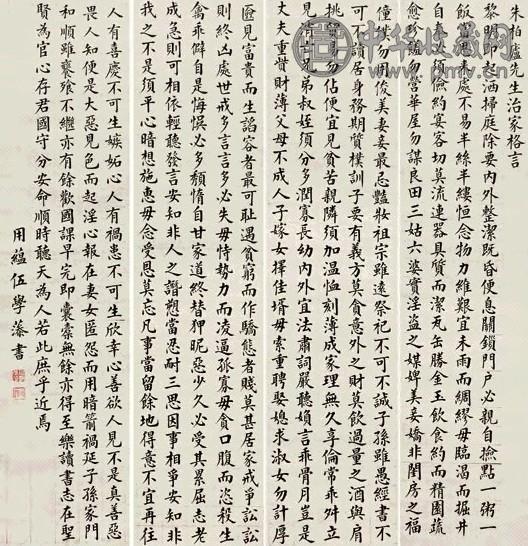 朱柏廬先生治家格言
黎明即起洒掃庭除要內外整潔既昏便息關鎖門戶必親自撿點一粥一
飯當思來處不易半絲半縷恒念物力維艱宜未雨而綢繆毋臨渴而掘井
自奉必須儉約宴客切莫流連器具質而潔瓦缶勝金玉飲食約而精園蔬
愈珍饈勿營華屋勿謀良田三姑六婆實淫盜之媒婢美妾嬌非閨房之福
僮僕勿用俊美妻妾最忌豔妝祖宗雖遠祭祀不可不誠子孫雖愚經書不
可不讀居身務期質樸訓子要有義方莫貪意外之財莫飲過量之酒與肩
挑貿易勿佔便宜見貧苦親鄰須加溫恤刻薄成家理無久享倫常乖舛立
見消亡兄弟叔姪須分多潤寡長幼內外宜法肅詞嚴聽婦言乖骨肉豈是
丈夫重貲財薄父母不成人子嫁女擇佳壻毋索重聘娶媳求淑女勿計厚
匳見富貴而生諂容者最可恥遇貧窮而作驕態者賤莫甚居家戒爭訟訟
則終凶處世戒多言言多必失毋恃勢力而凌逼孤寡毋貪口腹而恣殺生
禽乖僻自是悔悞必多頹惰自甘家道終替狎昵惡少久必受其累屈志老
成急則可相依輕聽發言安知非人之譖愬當忍耐三思因事相爭安知非
我之不是須平心暗想施惠毋念受恩莫忘凡事當留餘地得意不宜再往
人有喜慶不可生嫉妬心人有禍患不可生欣幸心善欲人見不是真善惡
畏人知便是大惡見色而起淫心報在妻女匿怨而用暗箭禍延子孫家門
和順雖饔飧不繼亦有餘歡國課早完即囊橐無餘亦得至樂讀書志在聖
賢為官心存君國守分安命順時聽天為人若此庶乎近焉
用緼伍學藻書
中华收藏网
www.pmv.cn